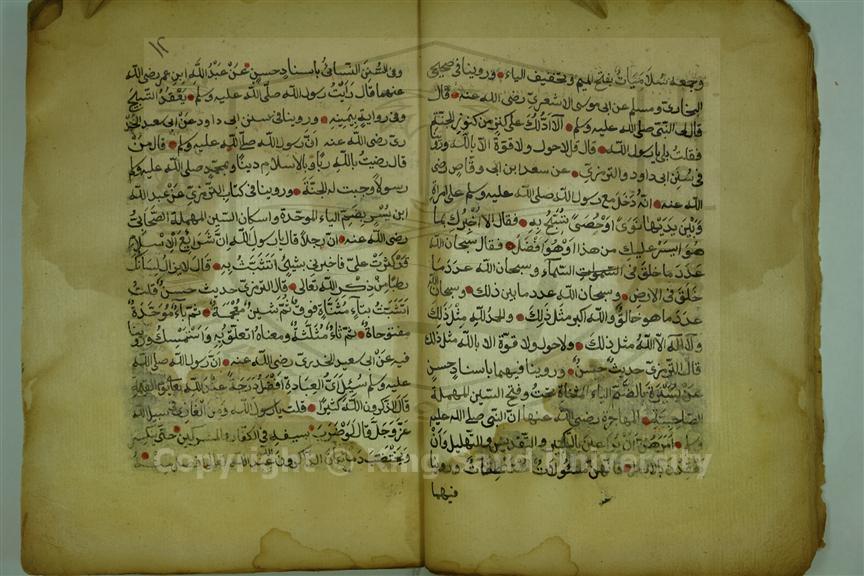 وجمعه سلاميات بفتح الميم وتخفيف الياء وروينا في صحيحي
البخاري ومسلم عن ابي موسى الاشعري رضي الله عنه قال
قال لي النبي صلى الله عليه وسلم الا ادلك على كنز من كنوز الجنة
فقلت بلى يا رسول الله قال قل لا حول ولا قوة الا بالله وروينا
في سنن ابي داود والترمذي عن سعد ابن ابي وقاص رضي
الله عنه انه دخل مع رسول الله صلى الله عليه وسلم على امراة
وبين يديها نوى او حصى تسبح به فقال الا اخبرك بما
هو ايسر عليك من هذا او هو افضل فقال سبحان الله
عدد ما خلق في السماء وسبحان الله عدد ما
خلق في الارض وسبحان الله عدد ما بين ذلك وسبحان الله
عدد ما هو خالق والله اكبر مثل ذلك والحمد لله مثل ذلك
ولا اله الا الله مثل ذلك ولا حول ولا قوة الا بالله مثل ذلك
قال الترمذي حديث حسن وروينا فيهما باسناد حسن
عن يسيرة بالضم الياء المثناة تحت وفتح السين المهملة
الصحابية المهاجرة رضي الله عنها ان النبي صلى الله عليه
وسلم امرهن ان يراعين بالتكبير والتقديس والتهليل وان
يعقدن بالانامل فانهن مسئولات مستنطقات وروينا
فيهما
١٢
وفي السنن النسائي باسناد حسن عن عبد الله ابن عمر رضي الله
عنهما قال رايت رسول الله صلى الله عليه وسلم يعقد التسبيح
وفي رواية بيمينه وروينا في سنن ابي داود عن ابي سعيد الخد
ري رضي الله عنه ان رسول الله صلى الله عليه وسلم قال من
قال رضيت بالله ربا وبالاسلام دينا وبمحمد صلى الله عليه وسلم
رسولا وجبت له الجنة وروينا في كتاب الترمذي عن عبد الله
ابن بسر بضم الباء الموحدة واسكان السين المهملة الصحابي
رضي الله عنه ان رجلا قال يا رسول الله ان شرايع الاسلام
قد كثرت علي فاخبرني بشيئ اتشبث به قال لا يزال لسانك
رطبا من ذكر الله تعالى قال الترمذي حديث حسن قلت
اتشبث بتاء مثناة فوق ثم شين معجمة ثم باء موحدة
مفتوحة ثم ثاء مثلثة ومعناه اتعلق به واستمسك وروينا
فيه عن ابي سعيد الخدري رضي الله عنه ان رسول الله صلى الله
عليه وسلم سئل اي العبادة افضل درجة عند الله تعالى يوم القيمة
قال الذاكرون الله كثيرا قلت يا رسول الله ومن الغازي في سبيل الله
عز وجل قال لو ضرب بسيفه في الكفار والمشركين حتى ينكسر
ويختضب دما لكان الذاكرون الله
Copyright © King Saud University